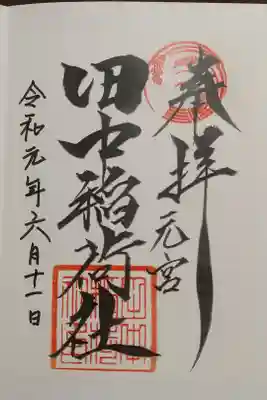 奉拝
元宮
田中稲荷社
令和元年六月十一日